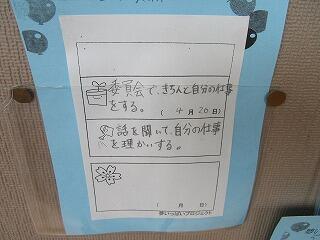 委員会で、きちんと自分の仕事
をする。
（ 4月 20日）
話を聞いて、自分の仕事
を理かいする。
（ 月 日）
夢いっぱいプロジェクト